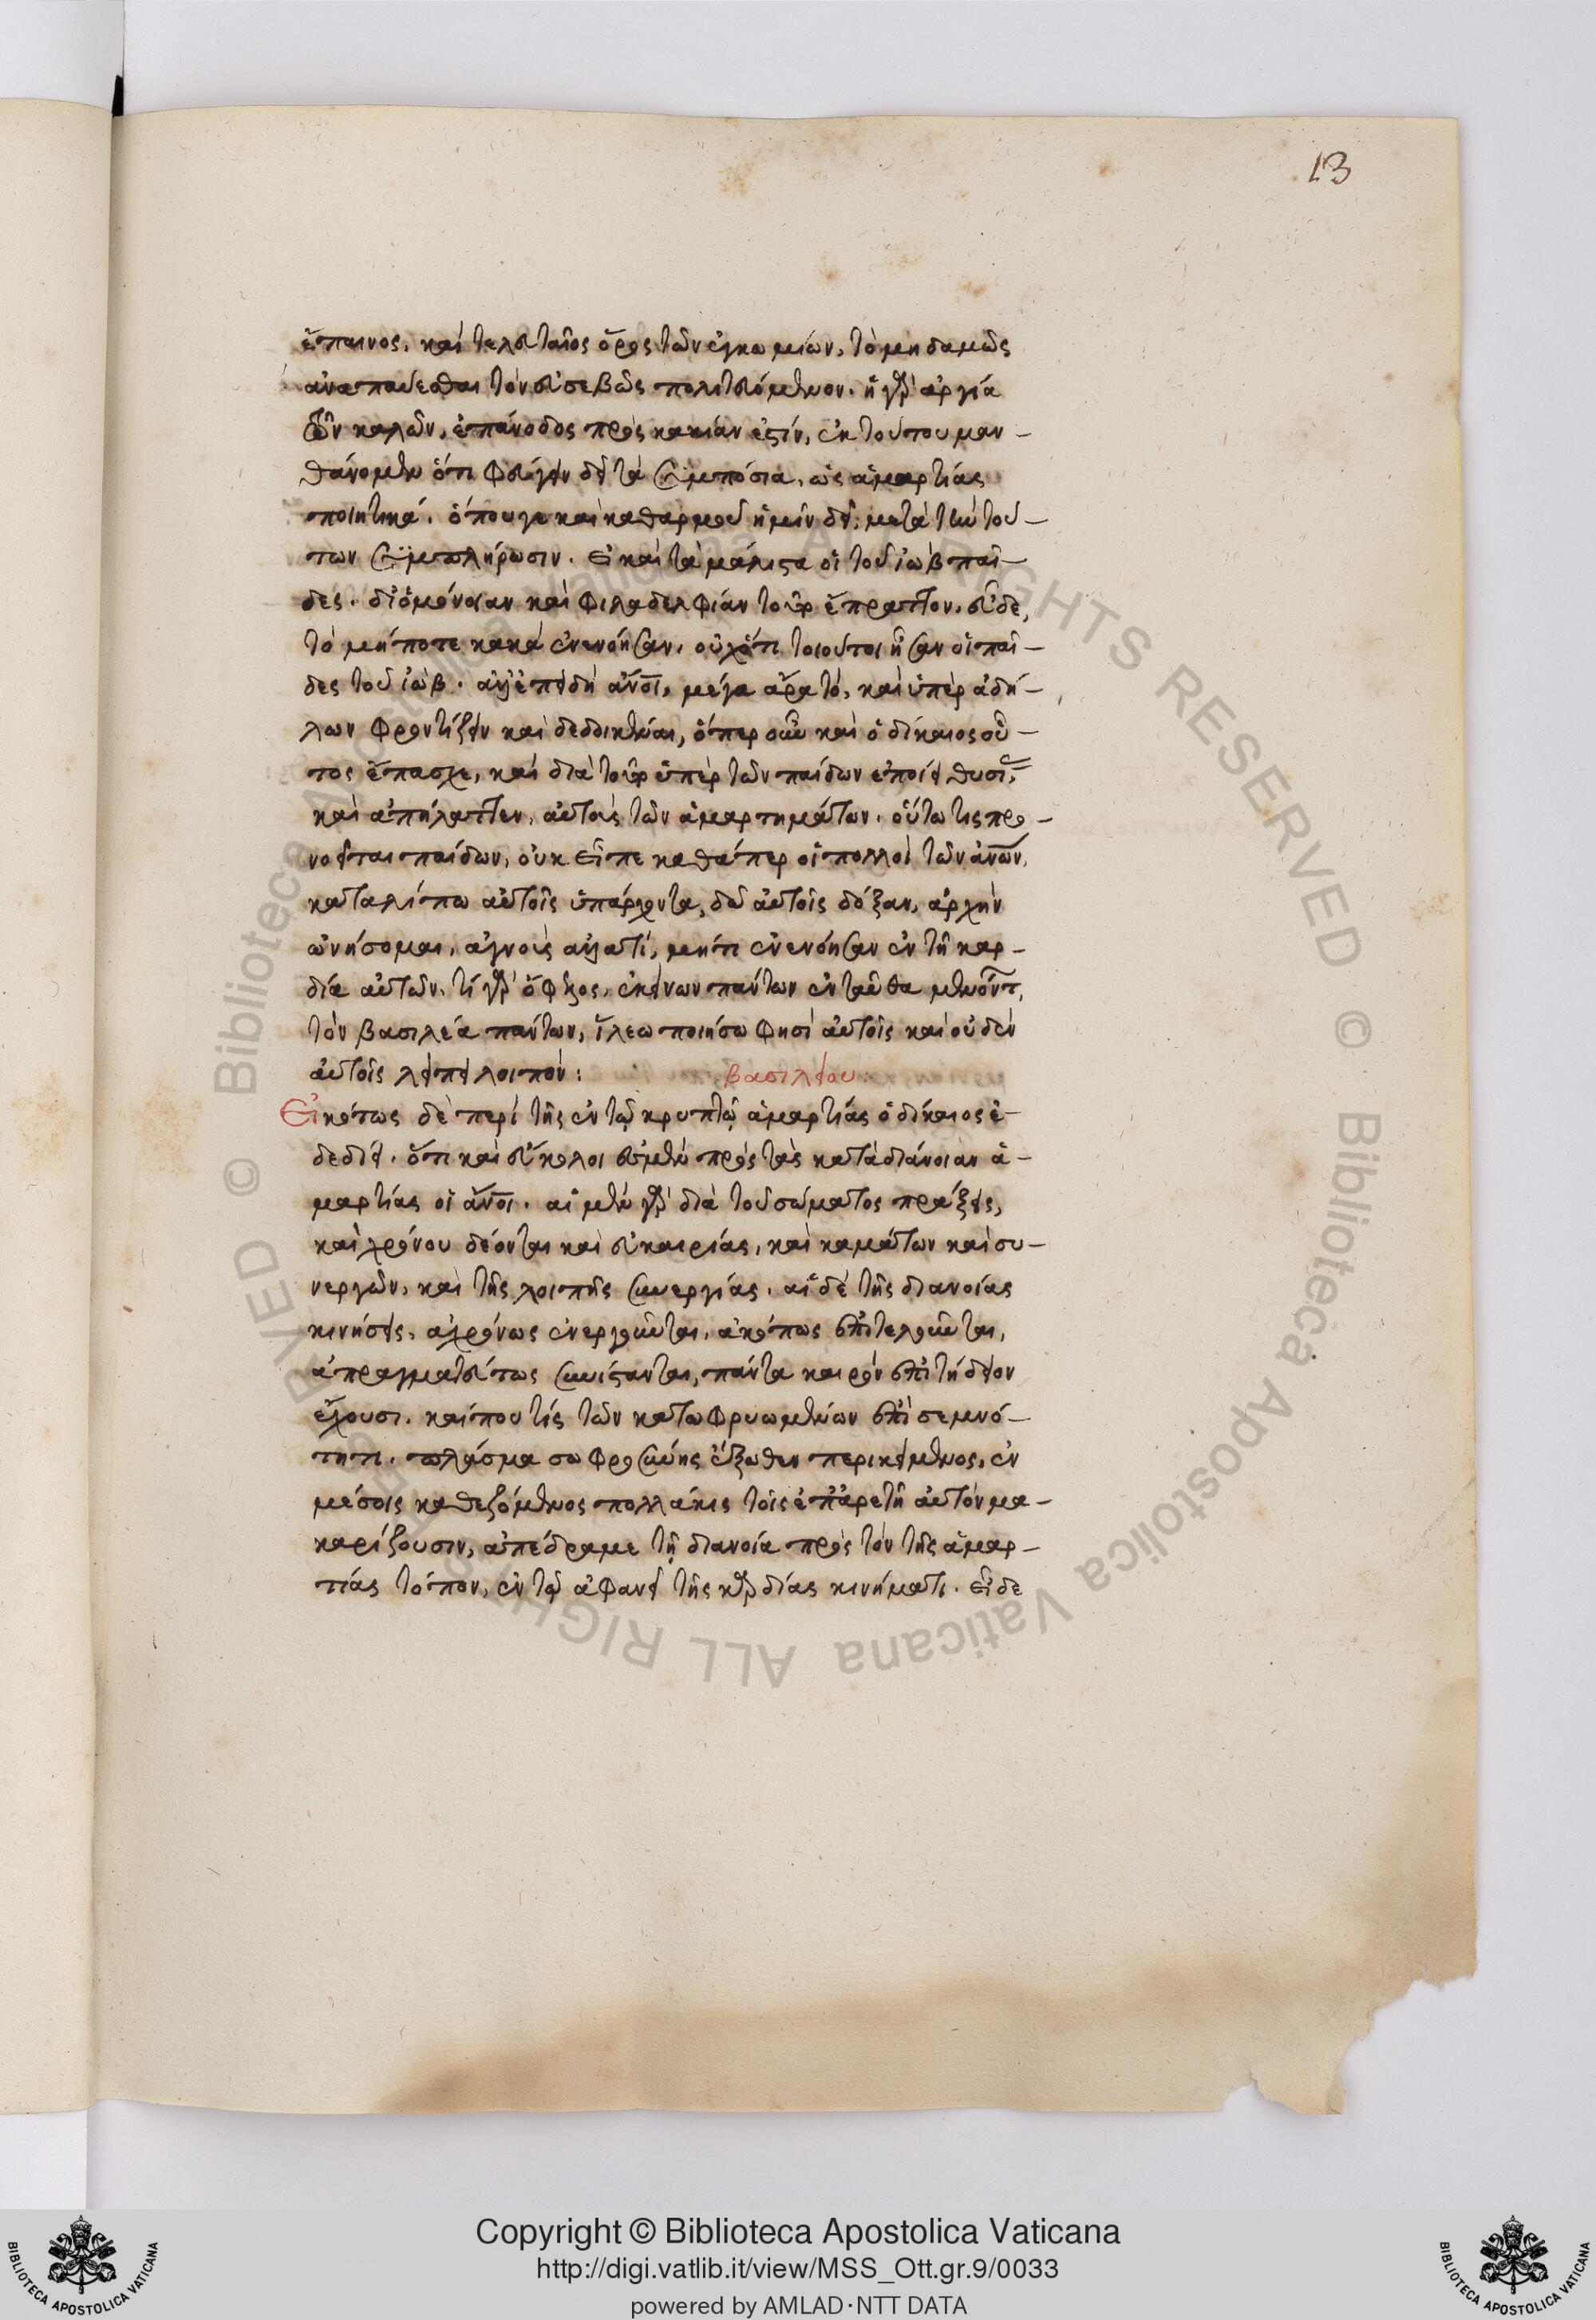 13
ἔπαινος, καὶ τελευταῖος ὅρος τῶν ἐγκωμίων, τὸ μηδαμῶς
ἀναπαύεσθαι τὸν εὐσεβῶς πολιτευόμενον. ἡ γὰρ ἀργία
τῶν καλῶν, ἐπάνοδος πρὸς κακίαν ἐστίν, ἐκ τούτου μαν-
θάνομεν ὅτι φεύγειν δεῖ τὰ συμπόσια, ὡς ἁμαρτίας
ποιητικά. ὅπου γε καὶ καθαρμοῦ ἡμῖν δεῖ, μετὰ τὴν τού-
των συμπλήρωσιν. εἰ καὶ τὰ μάλιστα οἱ τοῦ ἰὼβ παῖ-
δες. δι' ὁμόνοιαν καὶ φιλαδελφίαν τοῦτο ἔπραττον. εὖ δὲ,
τὸ μήποτε κακὰ ἐνενόησαν. οὐχ ὅτι τοιοῦτοι ἦσαν οἱ παῖ-
δες τοῦ ἰώβ. ἀλλ' ἐπειδὴ ἄνοι, μέγα ἄρα τὸ, καὶ ὑπὲρ ἀδή-
λων φροντίζειν καὶ δεδοικέναι, ὅπερ οὖν καὶ ὁ δίκαιος οὗ-
τος ἔπασχε, καὶ διὰ τοῦτο ὑπὲρ τῶν παίδων ἐποίει θυσί
καὶ ἀπήλαττεν, αὐτοὺς τῶν ἁμαρτημάτων. οὕτω τις προ-
νοεῖται παίδων, οὐκ εἶπε καθάπερ οἱ πολλοὶ τῶν ἀνων,
καταλίπω αὐτοῖς ὑπάρχοντα, δῶ αὐτοῖς δόξαν, ἀρχὴν
ὠνήσομαι, ἀγροὺς ἀλλὰ τί, μήτι ἐνενόησαν ἐν τῇ καρ-
δία αὐτῶν. τί γὰρ ὄφελος, ἐκείνων πάντων ἐνταῦθα μενόντ,
τὸν βασιλέα πάντων, ἵλεω ποιήσω φησὶ αὐτοῖς καὶ οὐδὲν
αὐτοῖς λείπει λοιπόν:
βασιλείου:
Εἰκότως δὲ περὶ τῆς ἐν τῷ κρυπτῷ ἁμαρτίας ὁ δίκαιος ἐ-
δεδίει. ὅτι καὶ εὔκολοι ἐσμὲν πρὸς τὰς κατὰ διάνοιαν ἁ-
μαρτίας οἱ ἄνοι. αἱ μὲν γὰρ διὰ τοῦ σώματος πράξεις,
καὶ χρόνου δέονται καὶ εὐκαιρίας, καὶ καμάτων καὶ συ-
νεργῶν, καὶ τῆς λοιπῆς συνεργίας. αἱ δὲ τῆς διανοίας
κινήσεις, ἀχρόνως ἐνεργοῦνται, ἀκόπως ἐπιτελοῦνται,
ἀπραγματεύτως συνίστανται, πάντα καιρὸν ἐπιτήδειον
ἔχουσι. καί που τίς τῶν κατωφρυωμένων ἐπὶ σεμνό-
τητι. πλάσμα σωφροσύνης ἔξωθεν περικείμενος, ἐν
μέσοις καθεζόμενος πολλάκις τοῖς ἐπ' ἀρετῇ αὐτὸν μα-
καρίζουσιν, ἀπέδραμε τῇ διανοία πρὸς τὸν τῆς ἁμαρ-
τίας τόπον, ἐν τῷ ἀφανεῖ τῆς καρδίας κινήματι. εἶδε
Copyright © Biblioteca Apostolica Vaticana
http://digi.vatlib.it/view/MSS_Ott.gr.9/0033
powered by AMLAD·NTT DATA